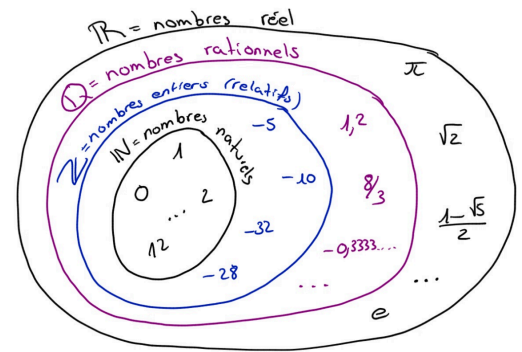 ℝ = nombres réel
ℚ = nombres rationnels
ℤ = nombres entiers (relatifs)
ℕ = nombres naturels
0
1
2
...
12
-5
-10
-32
-28
1,2
8/3
-0,3333....
...
π
√2
1-√5
2
...
e